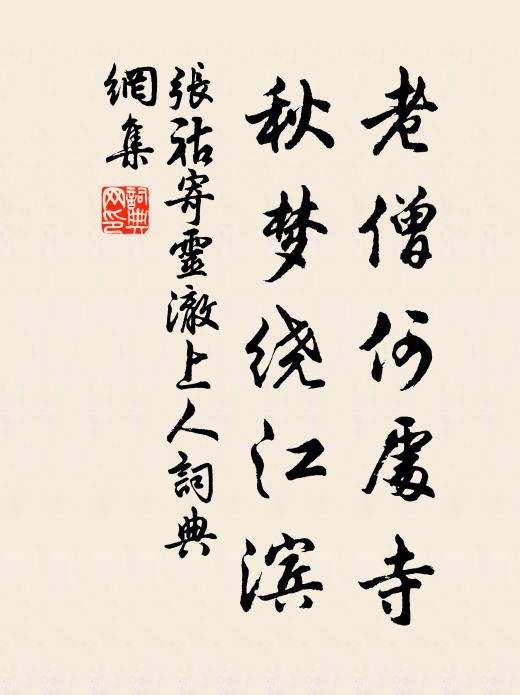 老僧何處寺
秋梦绕江滨
張祜寄靈澈上人詞典
網集
詞典
网印